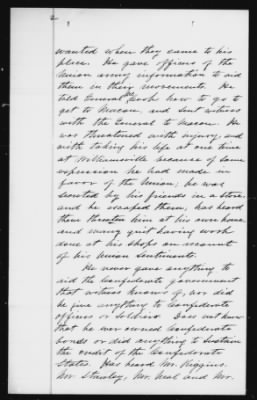 wanted when they came to his
place. He gave officers of the
Union army information to aid
them in their movements. He
told General how to go to
get to Macon, and sent witness
with the General to Macon. He
was threatened with injury and
with taking his life at one time
at Williamsville because of some
expression he had made in
favor of the Union; he was
by his friends in a store
and he escaped them; has heard
them threaten him at his own house
and many quit having work
done at his shops on account
of his Union sentiments.
He never gave anything to
aid the Confederate government
that witness knows of, nor did
he give anything to Confederate
officers or soldiers. Does not know
that he ever owned Confederate
bonds or did anything to sustain
the credit of the Confederate
States. Has heard Mr. Riggins,
Mr. Stanley, Mr. Neal and Mr.